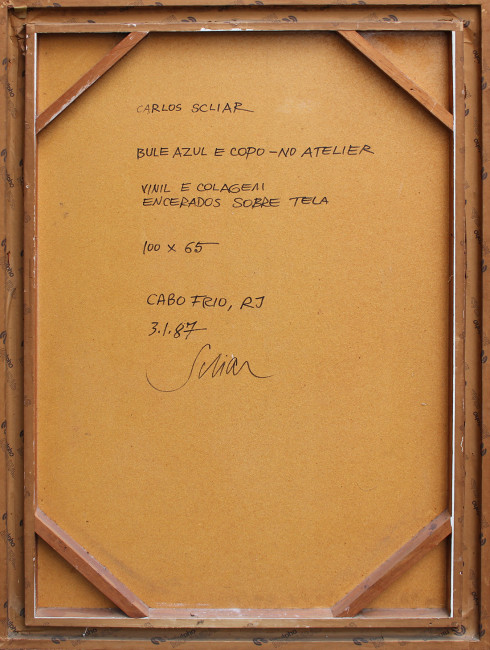 CARLOS SCLIAR
BULE AZUL E COPO - NO ATELIER
VINIL E COLAGEM
ENCERADOS SOBRE TELA
100 x 65
CABO FRIO, RJ
3.1.87
Scliar